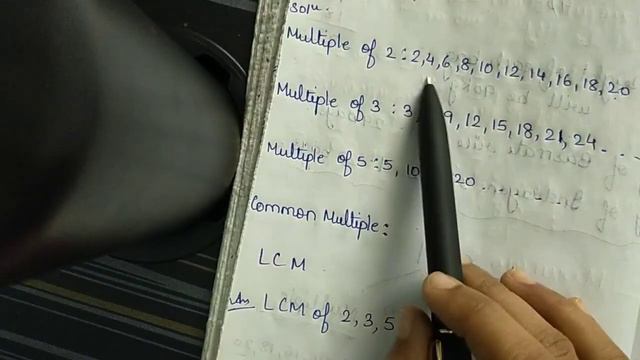 Solu.
Multiple of 2 : 2,4,6,8,10,12,14,16,18,20
Multiple of 3 : 3, 9,12,15,18,21,24...
Multiple of 5 : 5, 10 20......
Common Multiple:
LCM
Ans. LCM of 2,3,5